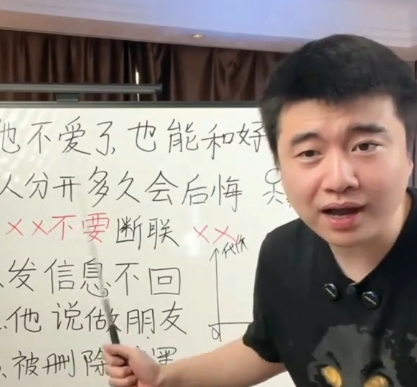 他不爱了,也能和好
人分开多久会后悔
××不要断联 ××
代价
发信息不回
他说做朋友
被删除